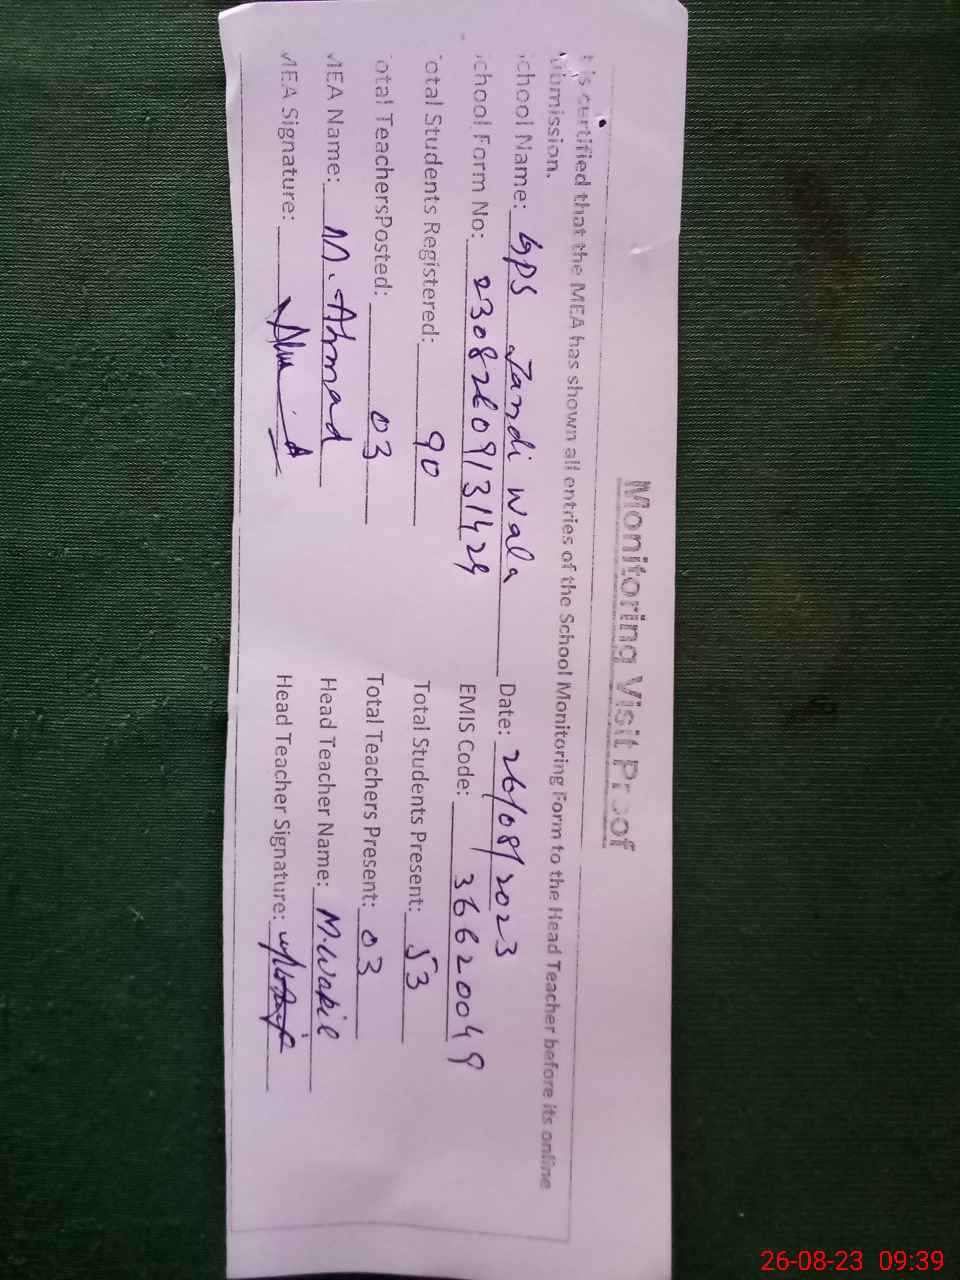 Monitoring Visit Proof
t is certified that the MEA has shown all entries of the School Monitoring Form to the Head Teacher before its online
ubmission.
chool Name: GPS Jandi Wala Date: 26/08/2023
chool Form No: 23082609131424 EMIS Code: 36620049
otal Students Registered: 90 Total Students Present: 53
otal TeachersPosted: 03 Total Teachers Present: 03
MEA Name: M. Ahmad Head Teacher Name: M. Wakil
MEA Signature: Head Teacher Signature:
26-08-23 09:39